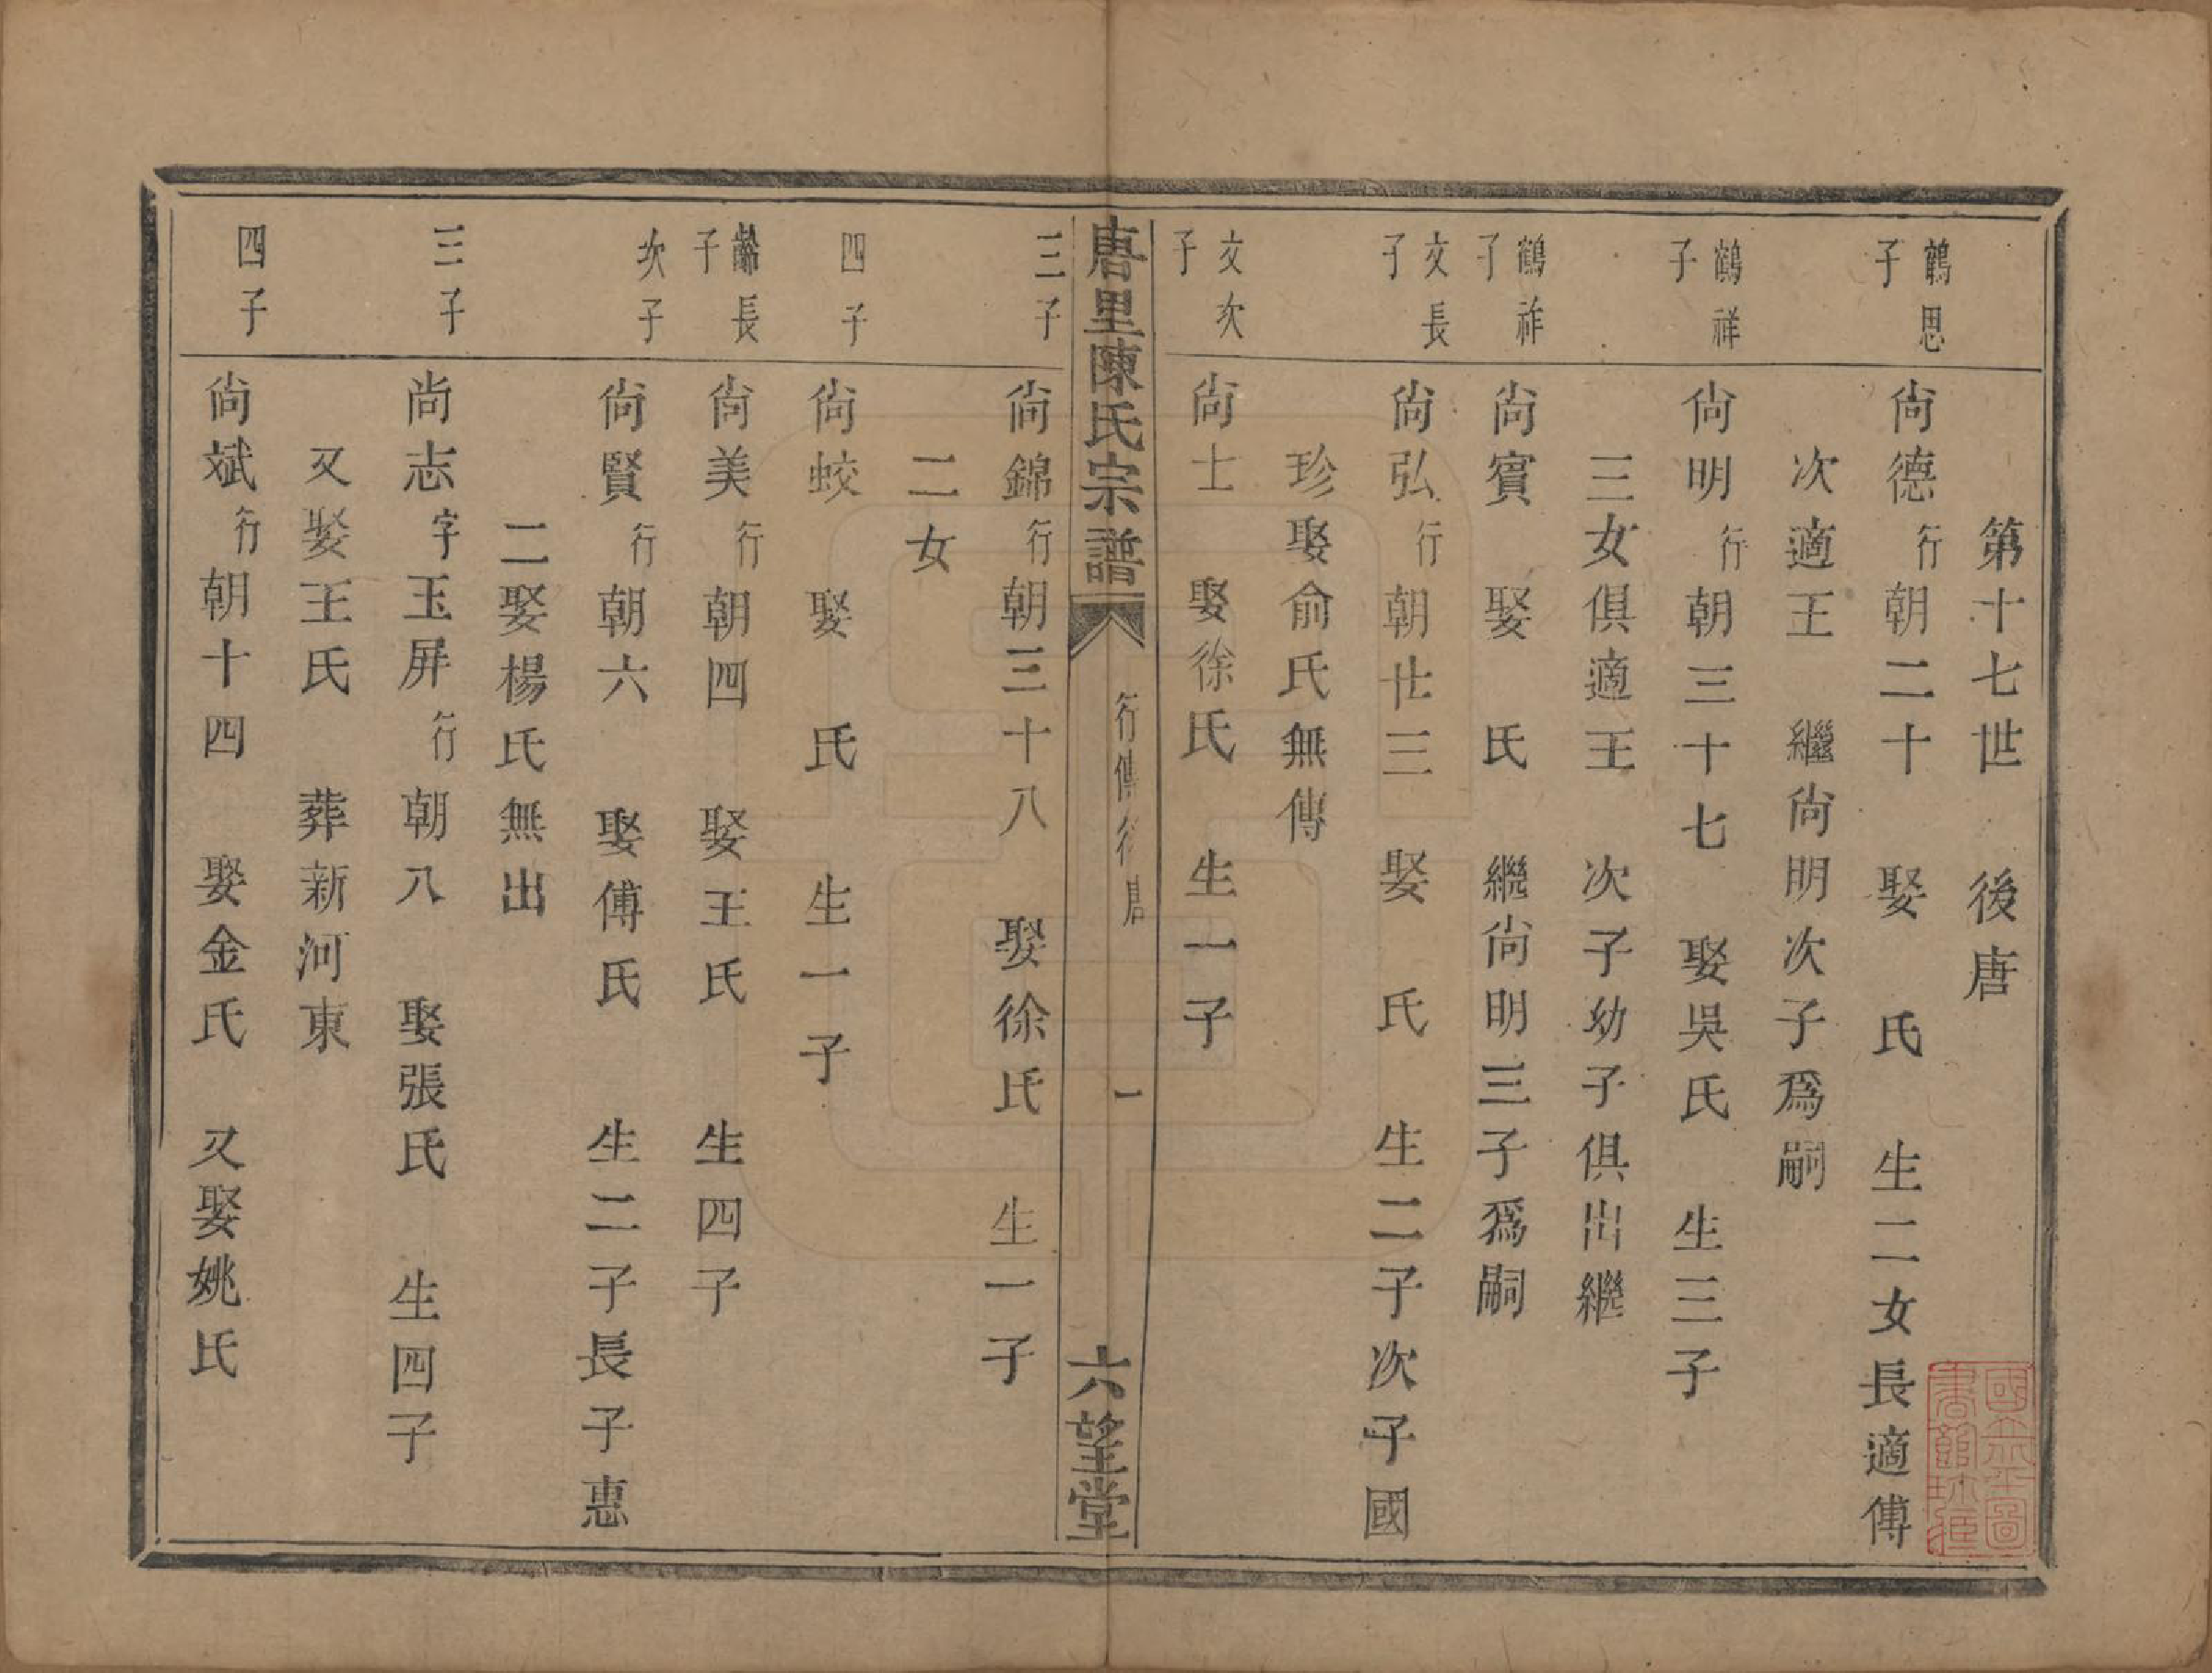 第十七世　後唐
鶴思子
尚德行朝二十　娶　氏　生二女長適傅
次適王　繼尚明次子爲嗣
鶴祥子
尚明行朝三十七　娶吳氏　生三子
三女俱適王　次子幼子俱出繼
鶴祚子
尚賓　娶　氏　繼尚明三子爲嗣
文長子
尚弘行朝廿三　娶　氏　生二子次子國
珍娶俞氏無傳
文次子
尚士　娶徐氏　生一子
唐里陳氏宗譜　行傳後唐　一　六望堂
三子
尚錦行朝三十八　娶徐氏　生一子
二女
四子
尚蛟　娶　氏　生一子
齡長子
尚美行朝四　娶王氏　生四子
次子
尚賢行朝六　娶傅氏　生二子長子惠
二娶楊氏無出
三子
尚志字玉屏行朝八　娶張氏　生四子
又娶王氏　葬新河東
四子
尚斌行朝十四　娶金氏　又娶姚氏